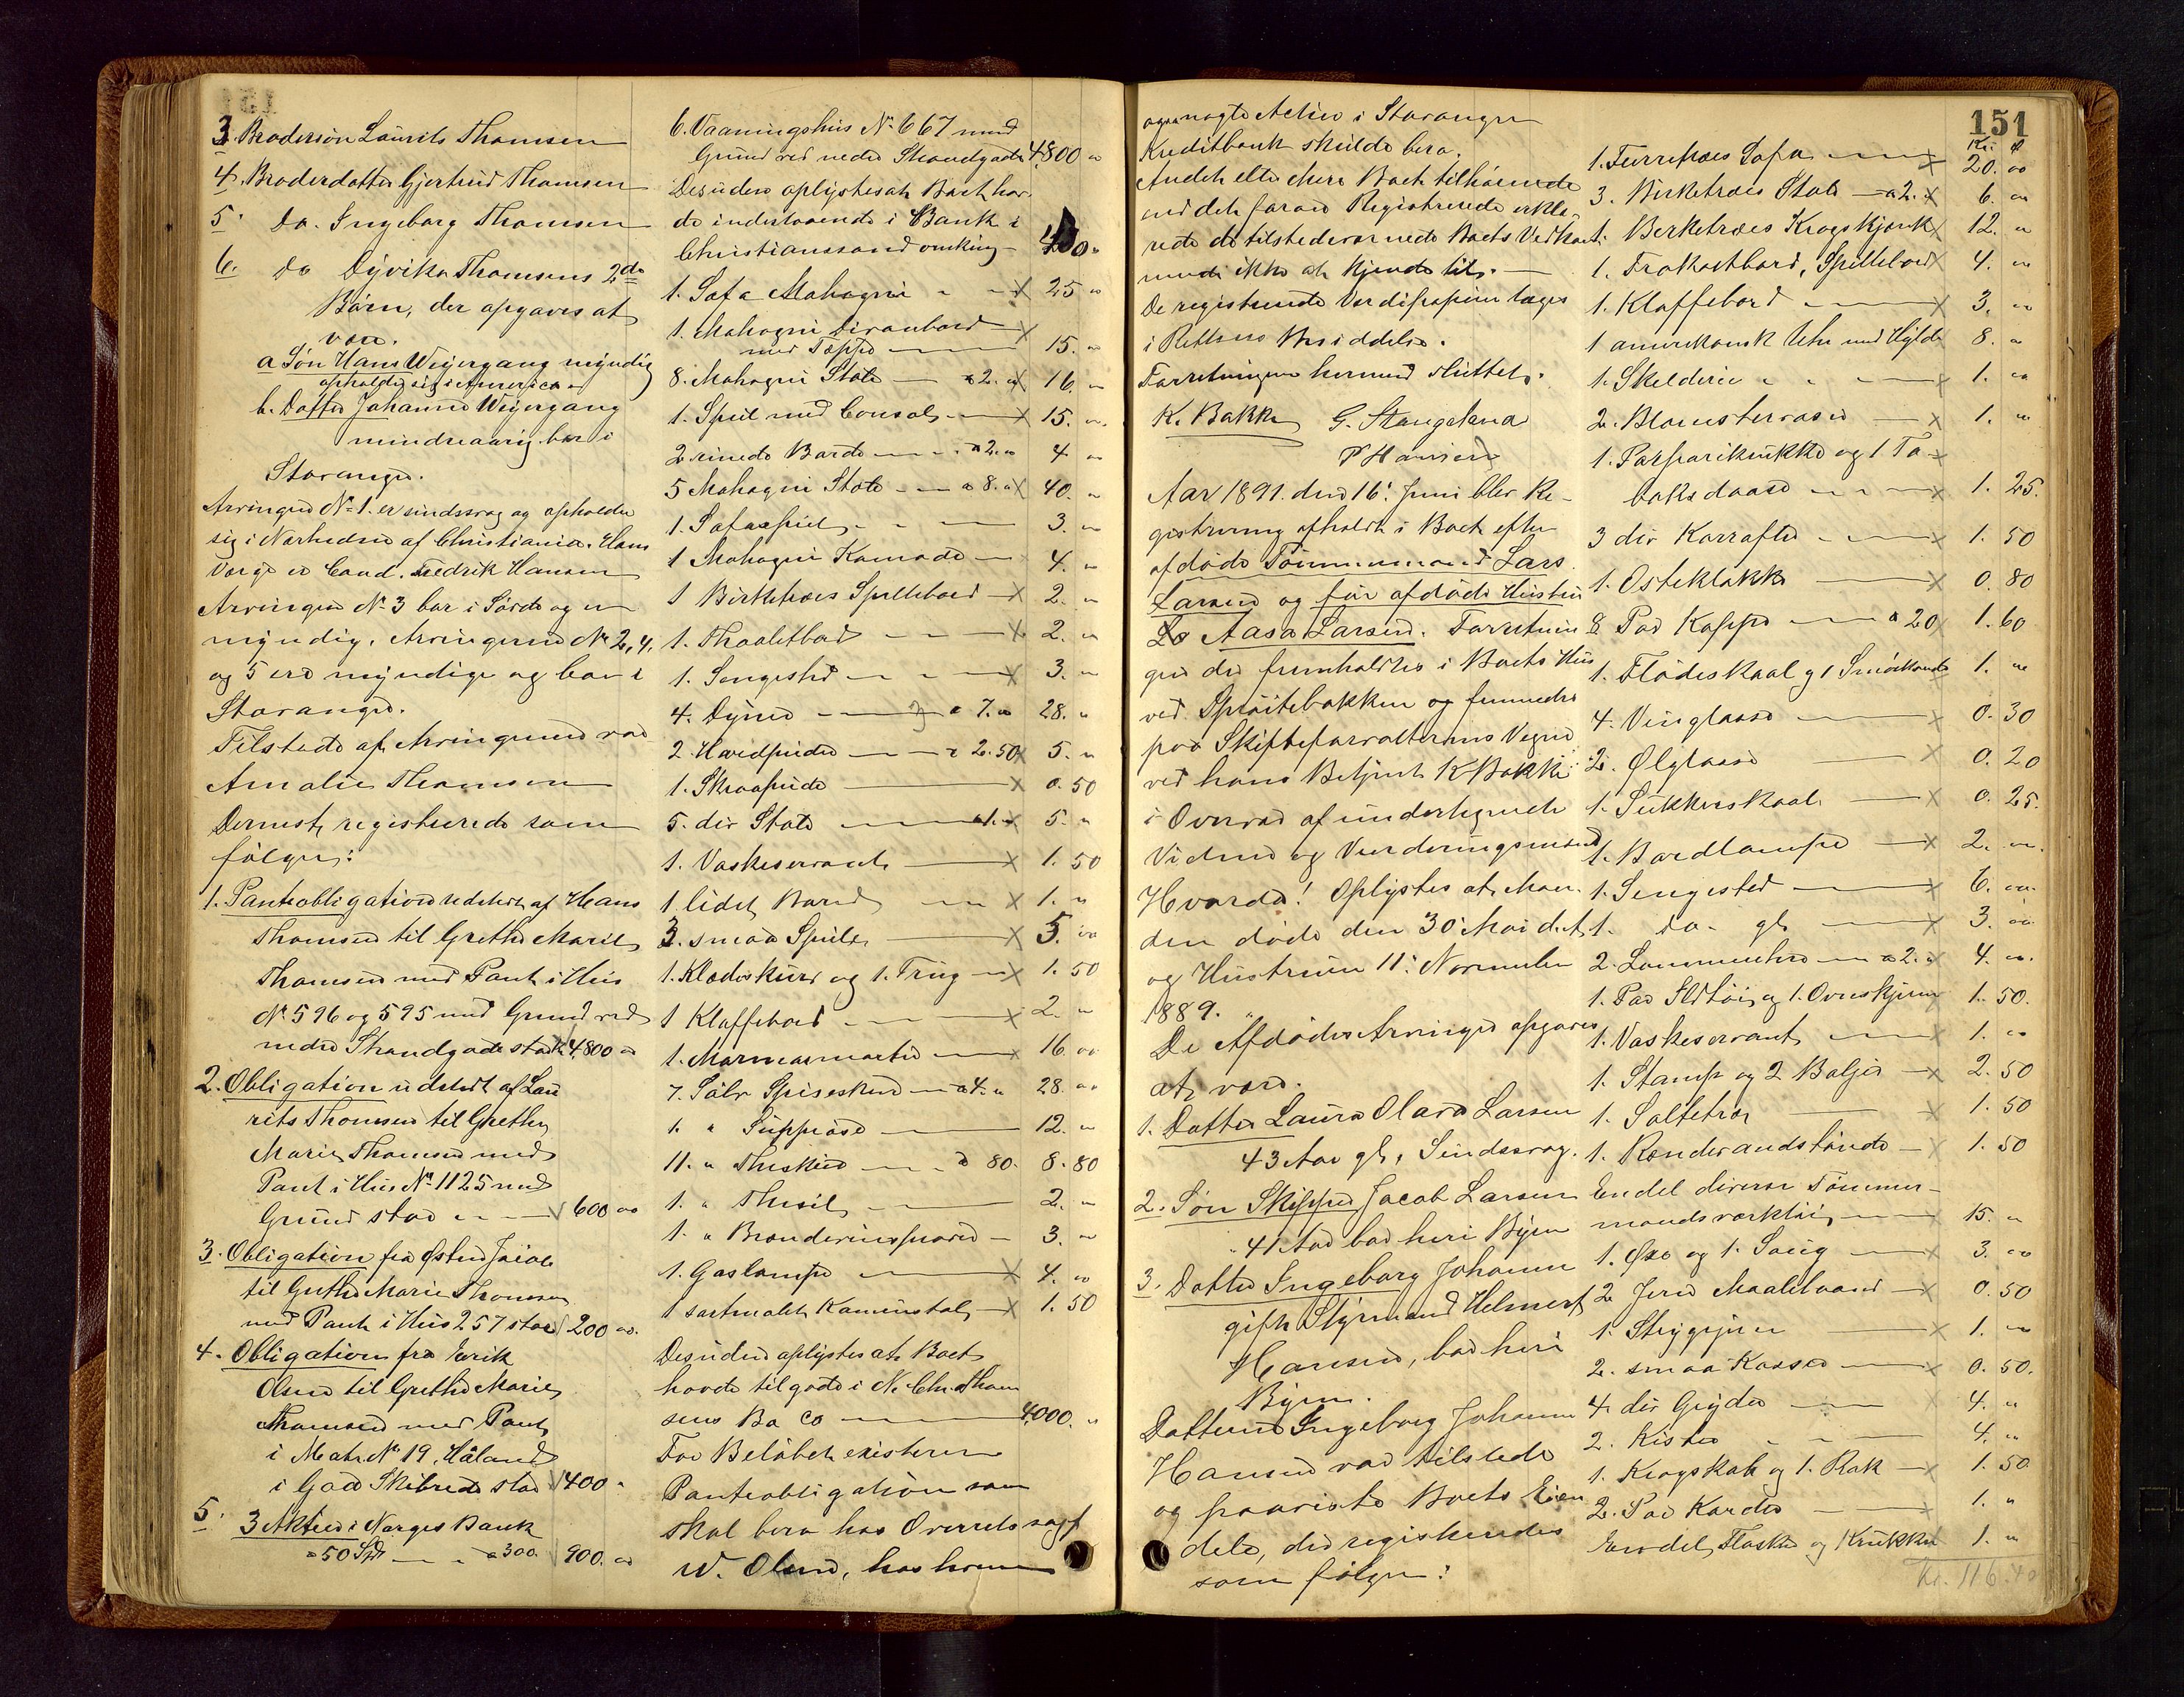 3. Brodersøn Laurits Thomsen
4. Broderdatter Gjertrud Thomsen
5. Do. Ingeborg Thomsen
6. Do Dyvika Thomsens 2de
Børn, der opgaves at
være.
a Søn Hans Weyergang myndig
opholder sig i Amerika
b. Datter Johanne Weyergang
mindreaarig bor i
Stavanger.
Arvingen No 1. er sindssvag og opholder
sig i Nærheden af Christiania. Hans
Værge er Cand. Fredrik Hansen
Arvingen No 3 bor i Sørde og er
myndig. Arvingerne No 2, 4,
og 5 ere myndige og bor i
Stavanger.
Tilstede af Arvingerne var
Amalie Thomsen
Dernest registrerede som
følger:
1. Panteobligation udstedt af Hans
Thomsen til Grethe Marie
Thomsen med Pant i Hus
No 596 og 595 med Grund ved
nedre Strandgade stor 4800 oo
2. Obligation udstedt af Lau
rits Thomsen til Grethe
Marie Thomsen med
Pant i Hus No 1125 med
Grund stor 600 oo
3. Obligation fra Østen
til Grethe Marie Thomsen
med Pant i Hus 257 stor 200 oo.
4. Obligation fra Eerik
Olsen til Grethe Marie
Thomsen med Pant
i Matr. No 19, Håland
i Skibrede stor 1400 "
5. 3 Aktier i Norges Bank
a 50 Spd a 300. 900. oo
6. Vaaningshus No 667 med
Grund ved nedre Strandgade 4800 oo
Desuden oplystes at Boet hav-
de indestaaende i Bank i
Christianssand omkring 400 "
1. Sofa Mahogni x 25 oo
1. Mahogni Divanbord x
med Tæppe 15. "
8. Mahogni Stole a 2. x 16. "
1. Speil med Consol x 15. "
2 runde Borde a 2. 4 "
5 Mahogni Stole a 8. x 40. "
1. Sofaspeil 3. "
1 Mahogni Komode 4. "
1 Birketræes Spillebord x 2. "
1. Thoalitbord x 2. "
1. Sengested x 3. "
4. Dyner a 7. " 28. "
2. Hovedpuder a 2.50 x 5. "
1. Skraapude x 0. 50
5. div Stole a 1. x 5. "
1. Vaskeservant x 1. 50
1 lidet Bord x 1. "
3. smaa Speile x 5. oo
1. Klædeskurv og 1. Trug x 1. 50
1 Klaffebord x 2. "
1. Marmormorter x 16. oo
7. Sølv Spiseskeer a 4. " 28. oo
1. " Suppeøse 12. "
11. " Theskeer a 80. 8. 80
1. " Thesil 2. "
1. " Brænderinsprove 3. "
1. Gaslampe x 4. oo
1 sortmalet Kaminstol x 1. 50
Desuden oplystes at Boet
havde tilgode i N. Chr. Thom
sens Bo Co 4000. "
For Beløbet existerer
Panteobligation som
skal bero hos Overretssagf
W. Olsen, hos hvem
ogsaa nogte Aktier i Stavanger
Kreditbank skulde bero.
Andet eller mere Boet tilhørende
end det foran Registrerede erklæ-
rede de tilstedeværende Boets Vedkom-
mende ikke at kjende til.
De registrerede Værdipapirer toges
i Rettens Besiddelse.
Forretningen hermed sluttet.
K. Bakke G. Stangeland
P Hansen
Aar 1891. den 16. Juni blev Re-
gistrering afholdt i Boet efter
afdøde Tømmermand Lars
Larsen og før afdøde Hustru
Aasa Larsen. Forretnin
gen der fremholdtes i Boets Hus
ved Sprøitebakken og fremmedes
paa Skifteforvalterens Vegne
ved hans Betjent K Bakke
i Overvær af undertegnede
Vidner og Vurderingsmænd
Hvorda! Oplystes at Man-
den døde den 30 Mai d.A.
og Hustruen 11. November
1889.
De Afdødes Arvinger opgaves
at være.
1. Datter Laura Olava Larsen
43 Aar gl. Sindssvag.
2. Søn Skipper Jacob Larsen
41 Aar bor heri Byen
3. Datter Ingeborg Johanne
gift Styrmand Helmert
Hansen, bor heri
Byen.
Datteren Ingeborg Johanne
Hansen var tilstede
og paaviste Boets Eien
dele, der registreredes
som følger:
151
Kr. Ø
1. Furretræes Sofa x 20. oo
3. Birketræes Stole a 2. x 6. oo
1. Berketræes Krogskjænk x 12. "
1. Frokostbord, Spillebord x 4. "
1. Klaffebord x 3. "
1 amerikansk Uhr med Hylde 8. "
1. Skelderie x 1. oo
2. Blomstervaser x 1. "
1. Porsparikrukke og 1 To-
baksdaase x 1. 25.
3 div Karrafler x 1. 50
1. Osteklokke x 0. 80
8 Par Kopper a 20 x 1. 60
1. Flødeskaal og 1 Smørkande 1. "
4. Vinglasse x 0. 30
2. Ølglasse x 0. 20
1. Sukkerskaal x 0. 25.
1. Bordlampe x 2. "
1. Sengested x 6. oo
1. Do. gl. x 3. oo
2. Lommeuhre a 2. x 4. oo
1. Par Ildtøi og 1. Ovnskjerm 1. 50.
1. Vaskeservant x 1. oo
1. Stamp og 2 Baljer x 2. 50
1. Saltetræ x 1. 50
1. Rendevandstønde 1. 50
Endel diverse Tømmer-
mandsværktøi 15. "
1. Øxe og 1. Saug x 3. oo
2 Jern x 0. 50
1. Strygejern x 1. "
2. smaa Kasser x 0. 50.
4. div Gryder 4. "
2. Kister 4. "
1. Krogskab og 1. Rok x 1. 50
2. Par Karder x 1. "
Endel, Flasker og Krukker 1. "
Kr. 116.40